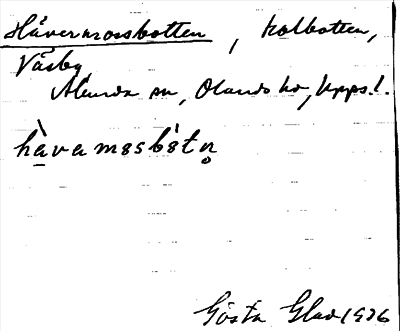 Håvermossbotten, kolbotten,
Väsby
Alunda sn, Olands hd, Upps.l.
hàvamɷsbɷ̀tn̥
Gösta Glad 1926